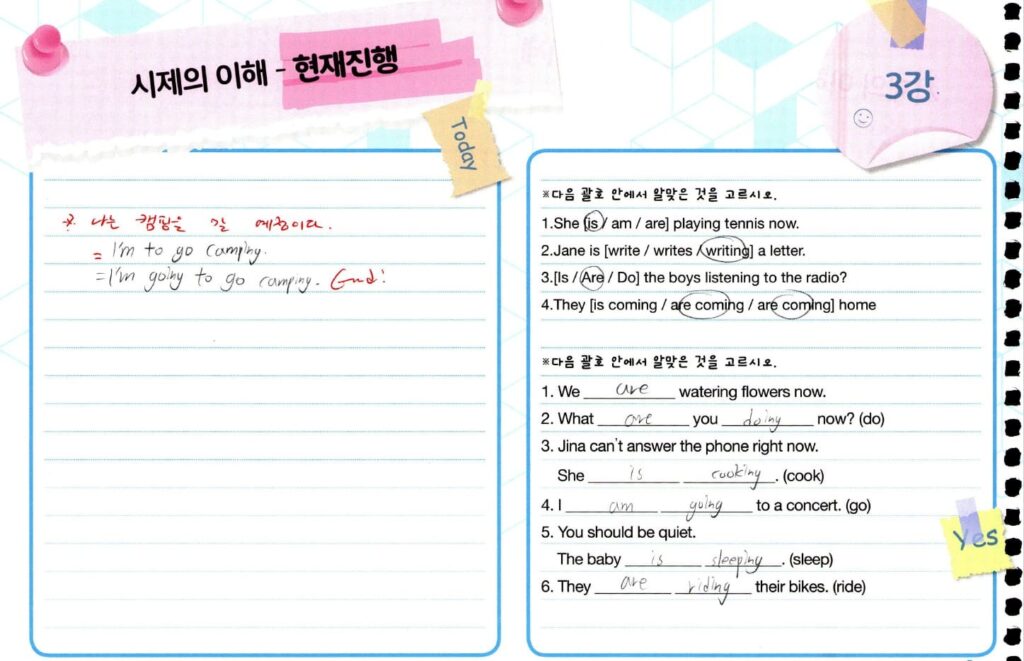 시제의 이해 - 현재진행
3강
Today
※ 나는 캠핑을 갈 예정이다.
= I'm to go camping.
= I'm going to go camping.
※다음 괄호 안에서 알맞은 것을 고르시오.
1.She [is / am / are] playing tennis now.
2.Jane is [write / writes / writing] a letter.
3.[Is / Are / Do] the boys listening to the radio?
4.They [is coming / are coming / are coming] home
※다음 괄호 안에서 알맞은 것을 고르시오.
1. We are watering flowers now.
2. What are you doing now? (do)
3. Jina can't answer the phone right now.
She is cooking. (cook)
4. I am going to a concert. (go)
5. You should be quiet.
The baby is sleeping. (sleep)
6. They are riding their bikes. (ride)
Yes